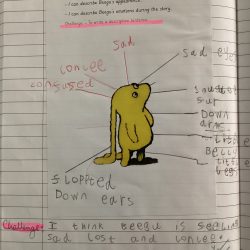 - I can describe Beegu's appearance.
- I can describe Beegu's emotions during the story.
Challenge - To write a descriptive sentence
sad
sad eyes
lonlee
consused
Down
arms
Belly
slopped
Down ears
Challenge:
I think BEEGU is
sad lost and lonlee